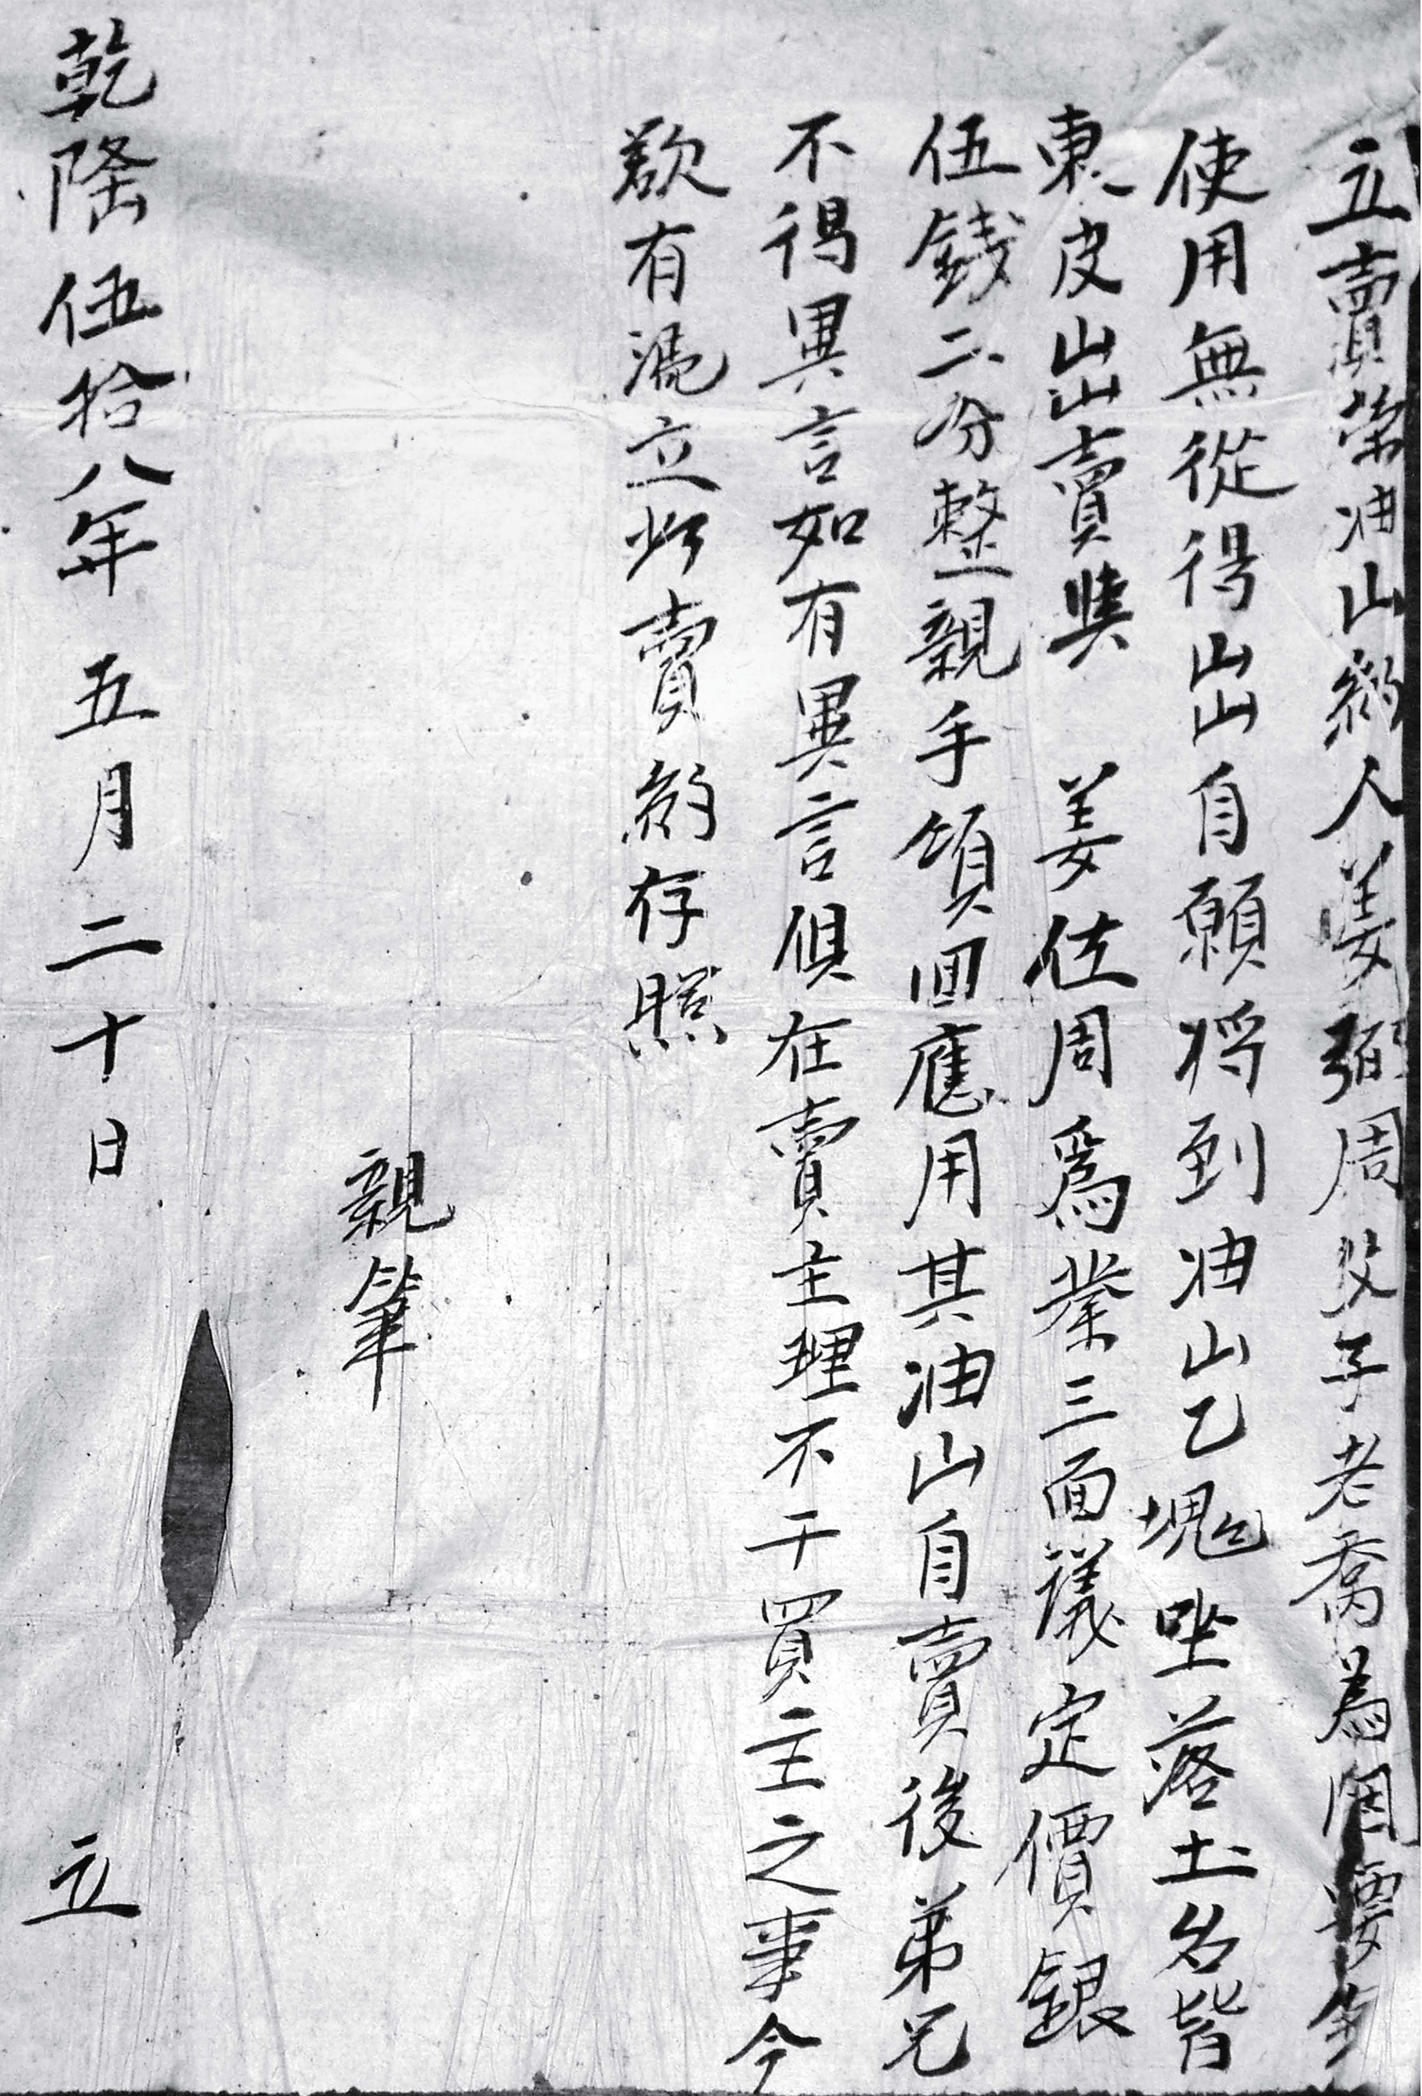 立賣柴油山約人姜弼周父子老喬為因要銀
使用無從得出自願将到油山乙塊坐落土名皆
東皮山出賣與 姜佐周為業三面議定價銀
伍錢二分整親手領回應用其油山自賣後弟兄
不得異言如有異言俱在賣主理不干買主之事今
欲有憑立此賣約存照
親筆
乾隆伍拾八年 五月二十日 立